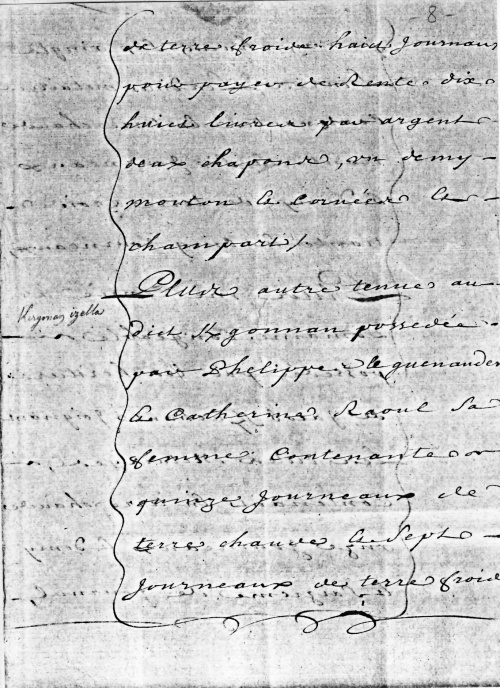 -8-
de terre froide huict Journaux
pour payer de Rente dix
huict livres par argent
deux chapons, un demy
mouton & corvées &
champart /.
Plus autre tenue au
Kergonan izella
dict K/gonnan possedée
par Phelippe le guenander
& Catherine Raoul Sa
femme Contenante
quinze Journeaux de
terre chaude & Sept
Journeaux de terre froid